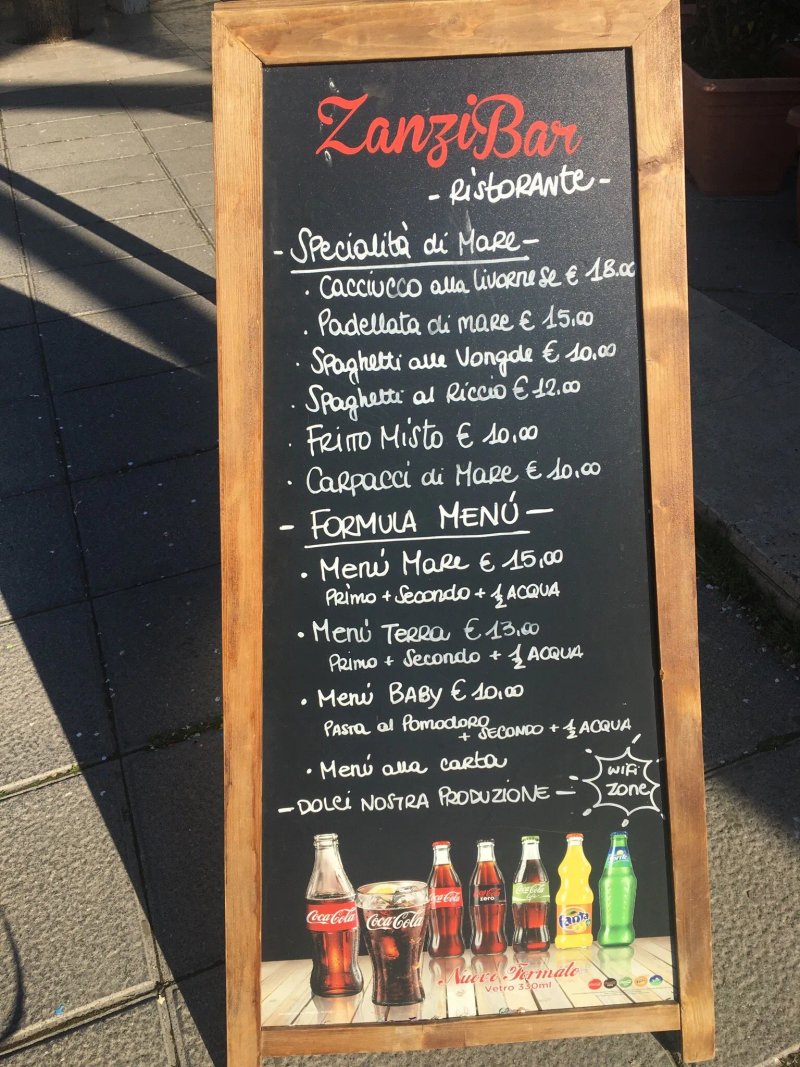 ZanziBar
- RISTORANTE -
- Specialità di Mare -
· Cacciucco alla livornese € 18.00
· Padellata di mare € 15,00
· Spaghetti alle Vongole € 10,00
· Spaghetti al Riccio € 12.00
· FRITTO MISTO € 10,00
· CARPACCI di MARE € 10,00
- FORMULA MENÚ -
· Menú Mare € 15,00
PRIMO + SECONDO + 1/2 ACQUA
· Menú TERRA € 13,00
PRIMO + SECONDO + 1/2 ACQUA
· Menú BABY € 10,00
PASTA al Pomodoro + SECONDO + 1/2 ACQUA
· Menú alla carta
- DOLCI NOSTRA PRODUZIONE -
WIFI ZONE
Coca-Cola
Coca-Cola
Coca-Cola
Coca-Cola zero
Coca-Cola life
Fanta
Sprite
Nuovo Formato
Vetro 330ml